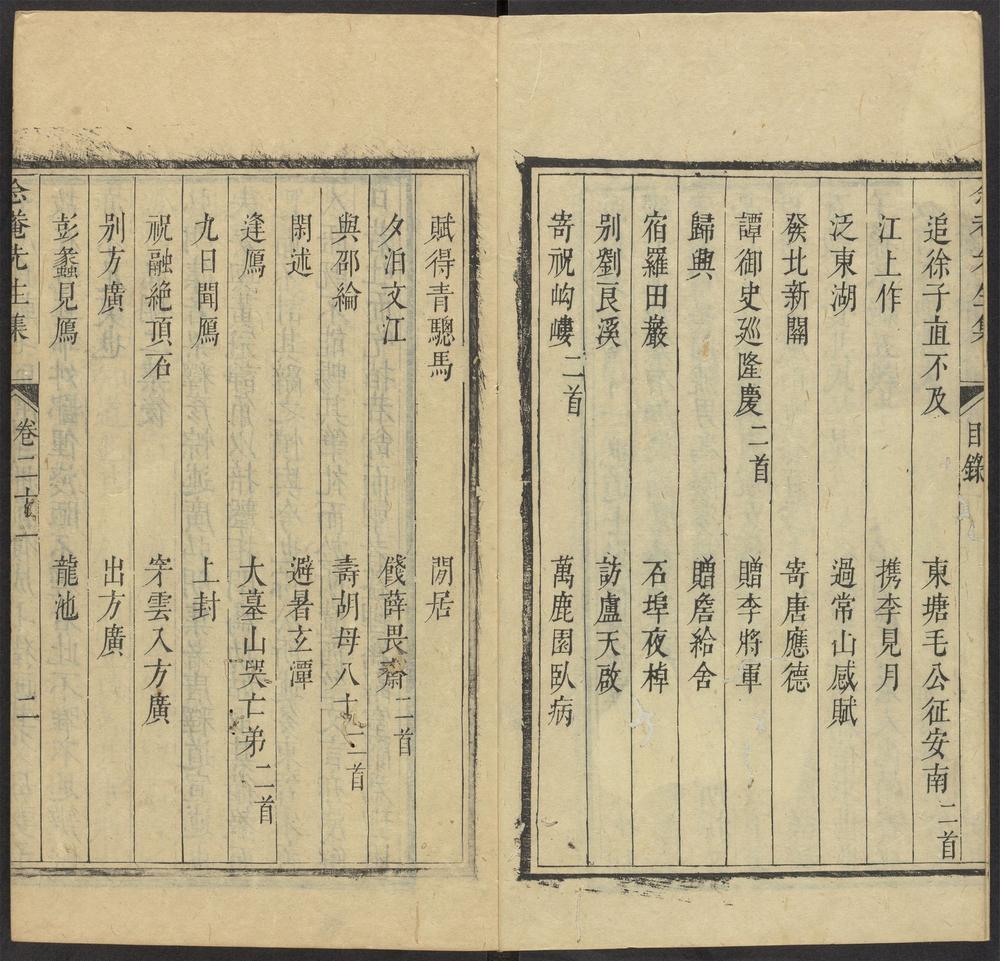 追徐子直不及 東塘毛公征安南二首
江上作 携李見月
泛東湖 過常山感賦
發北新關 寄唐應德
譚御史廵隆慶二首 贈李將軍
歸興 贈詹給舍
宿羅田巖 石埠夜棹
别劉良溪 訪盧天啟
寄祝岣嶁二首 萬鹿園臥病
目錄
賦得青驄馬 閒居
夕泊文江 餞薛畏齋二首
與邵綸 壽胡母八十二首
閑述 避暑玄潭
逢鴈 大墓山哭亡弟二首
九日聞鴈 上封
祝融絶頂石 穿雲入方廣
别方廣 出方廣
彭蠡見鴈 龍池
念菴先生集 卷二 二